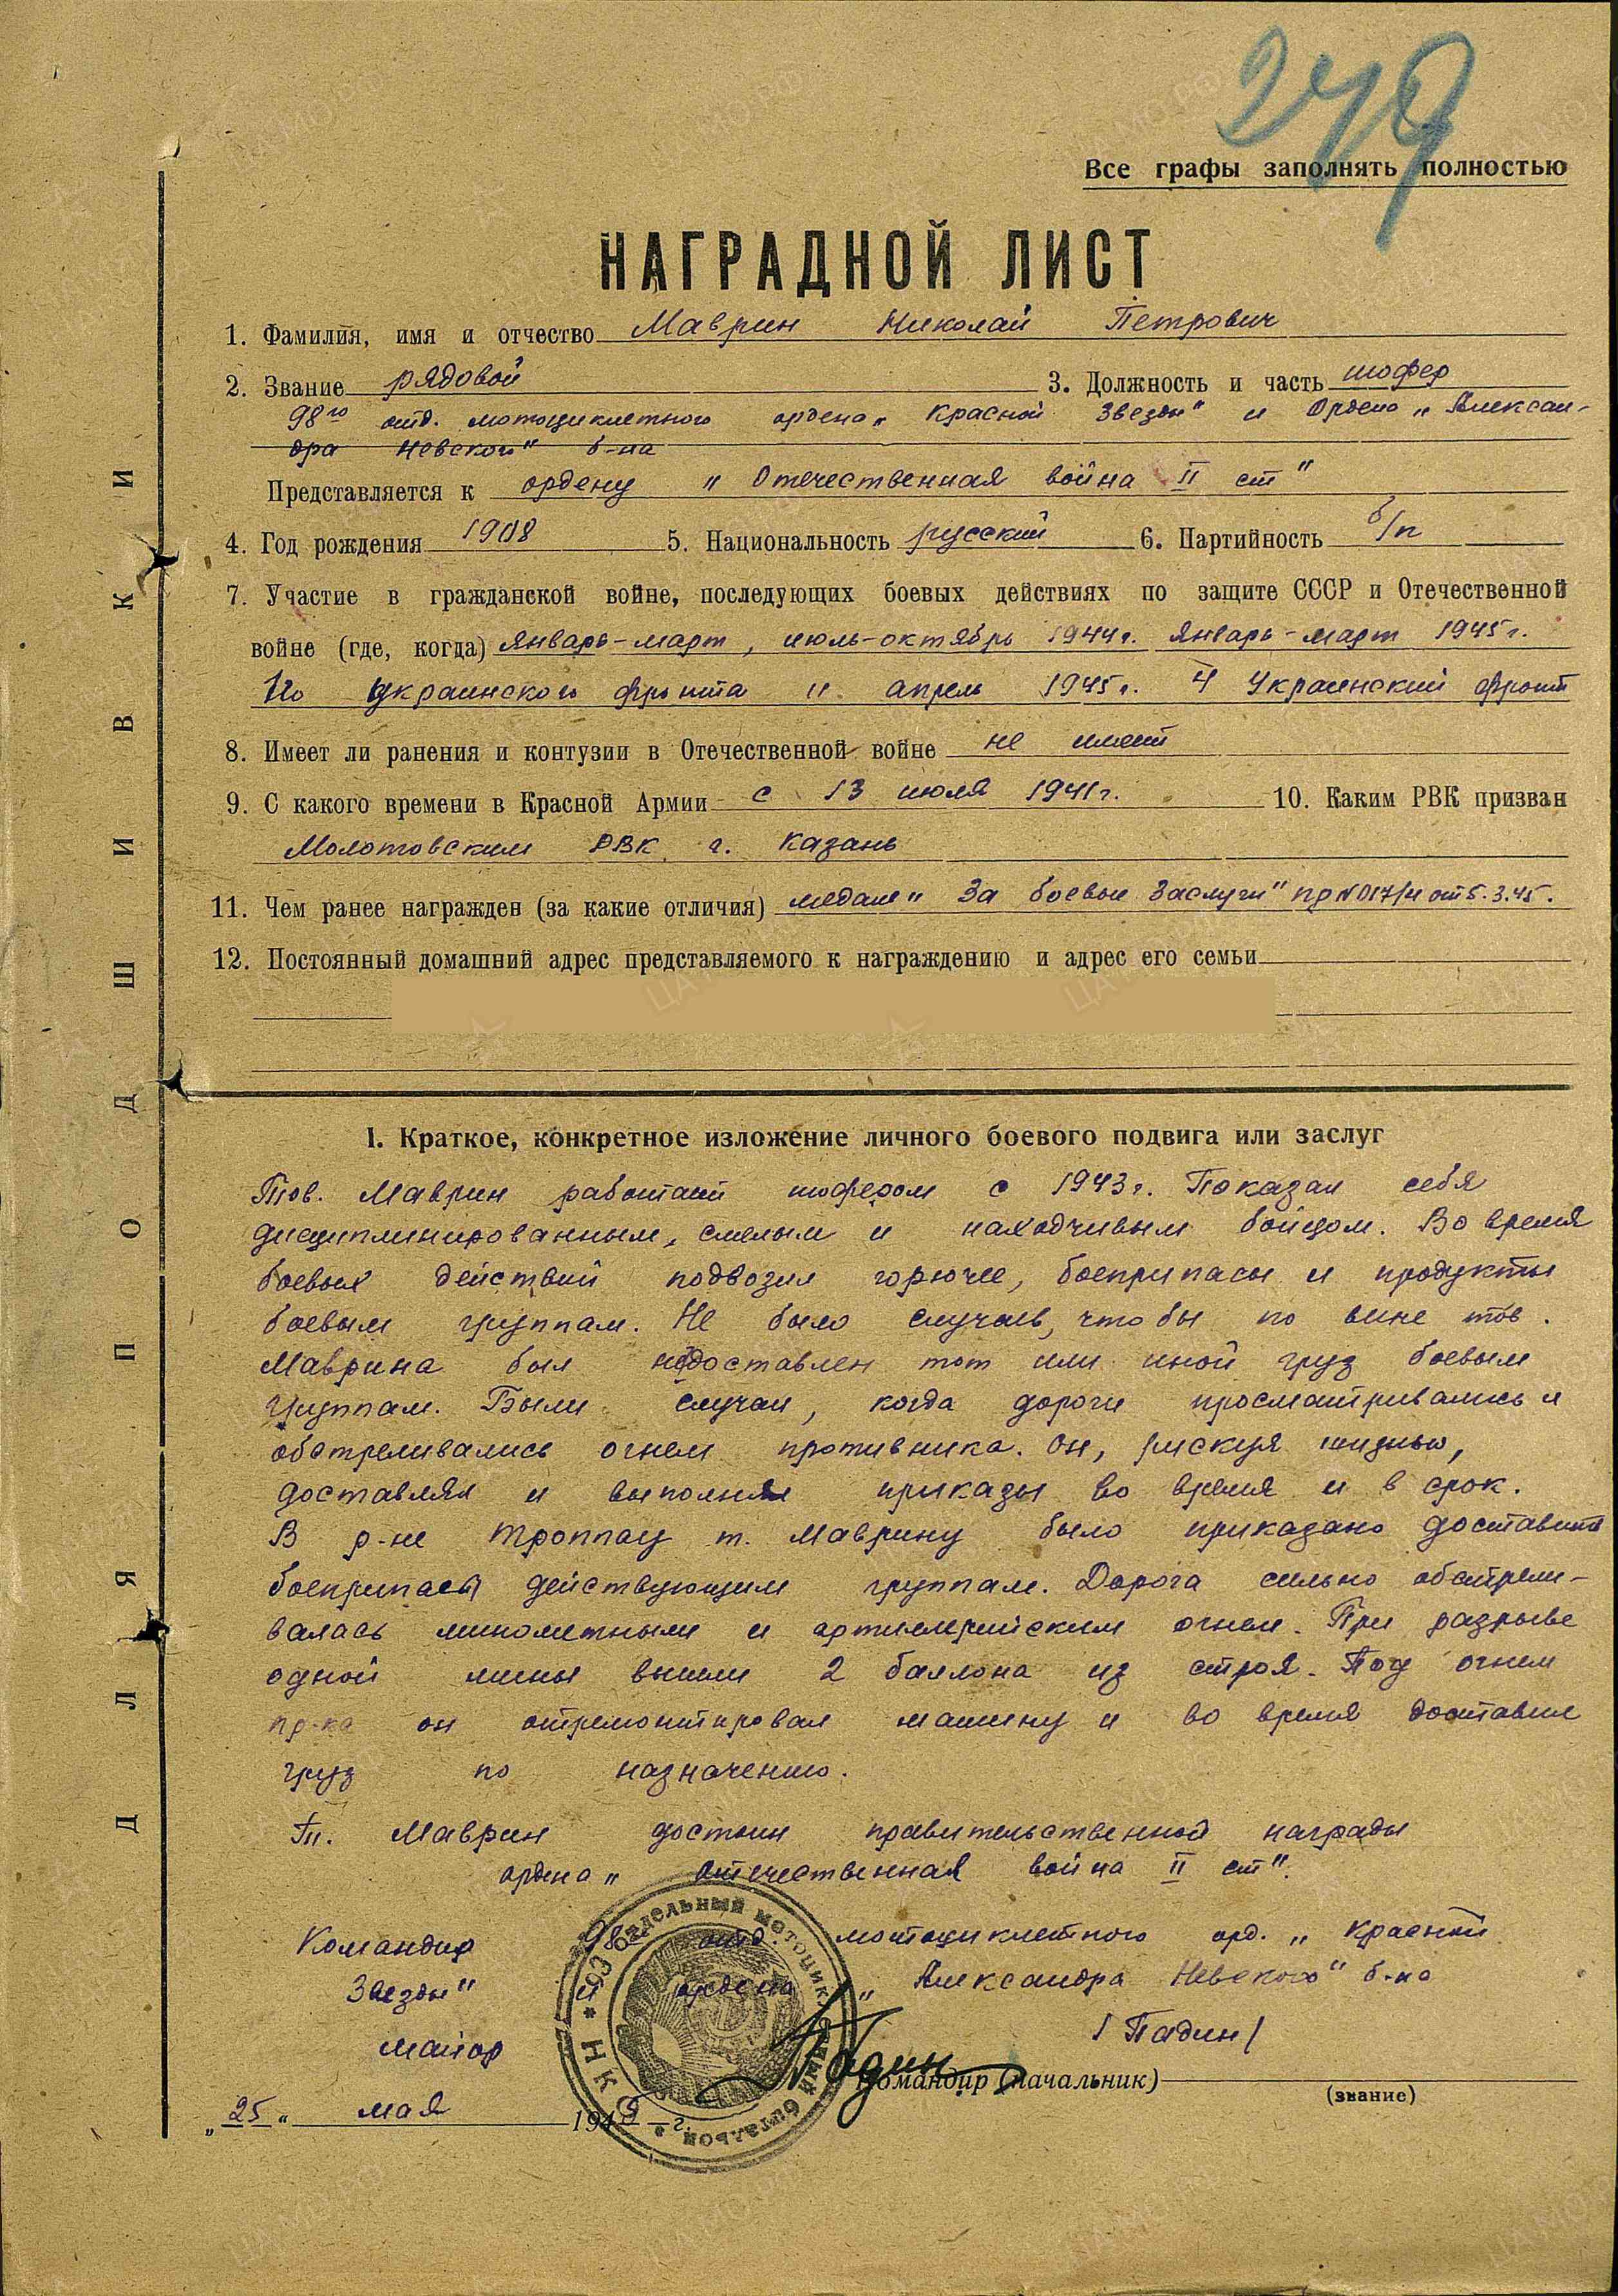 279
Все графы заполнять полностью
НАГРАДНОЙ ЛИСТ
1. Фамилия, имя и отчество Маврин Николай Петрович
2. Звание рядовой 3. Должность и часть шофер
98го отд. мотоциклетного ордена „Красной Звезды" и Ордена „Алексан-
дра Невского" б-на
Представляется к ордену „Отечественная война II ст"
4. Год рождения 1908 5. Национальность русский 6. Партийность б/п
7. Участие в гражданской войне, последующих боевых действиях по защите СССР и Отечественной
войне (где, когда) январь-март, июль-октябрь 1944г. январь-март 1945г.
1го Украинского фронта и апрель 1945г. 4 Украинский фронт
8. Имеет ли ранения и контузии в Отечественной войне не имеет
9. С какого времени в Красной Армии с 13 июля 1941г. 10. Каким РВК призван
Молотовским РВК г. Казань
11. Чем ранее награжден (за какие отличия) медаль „За боевые заслуги" пр N017/н от 5.3.45.
12. Постоянный домашний адрес представляемого к награждению и адрес его семьи
I. Краткое, конкретное изложение личного боевого подвига или заслуг
Тов. Маврин работает шофером с 1943г. Показал себя
дисциплинированным, смелым и находчивым бойцом. Во время
боевых действий подвозил горючее, боеприпасы и продукты
боевым группам. Не было случаев, чтобы по вине тов.
Маврина был недоставлен тот или иной груз боевым
группам. Были случаи, когда дороги просматривались и
обстреливались огнем противника. Он, рискуя жизнью,
доставлял и выполнял приказы во время и в срок.
В р-не Троппау т. Маврину было приказано доставить
боеприпасы действующим группам. Дорога сильно обстрели-
валась минометным и артиллерийским огнем. При разрыве
одной мины вышли 2 баллона из строя. Под огнем
пр-ка он отремонтировал машину и во время доставил
груз по назначению.
Т. Маврин достоин правительственной награды
ордена „Отечественная война II ст".
Командир 98 отд. мотоциклетного орд. „Красной
Звезды" и ордена „Александра Невского" б-на
майор /Падин/
Падин
Командир (начальник)
(звание)
„25" мая 1945 г.
98 Отдельный мотоциклетный батальон * НКО *
ДЛЯ ПОДШИВКИ